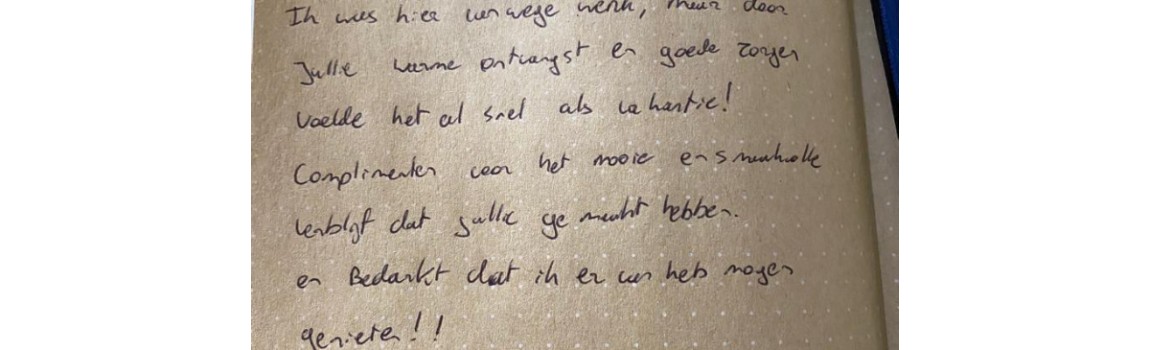 Ik was hier vanwege werk, maar door
Jullie warme ontvangst en goede zorgen
voelde het al snel als vakantie!
Complimenten voor het mooie en smaakvolle
verblijf dat jullie gemaakt hebben.
en Bedankt dat ik er van heb mogen
genieten!!